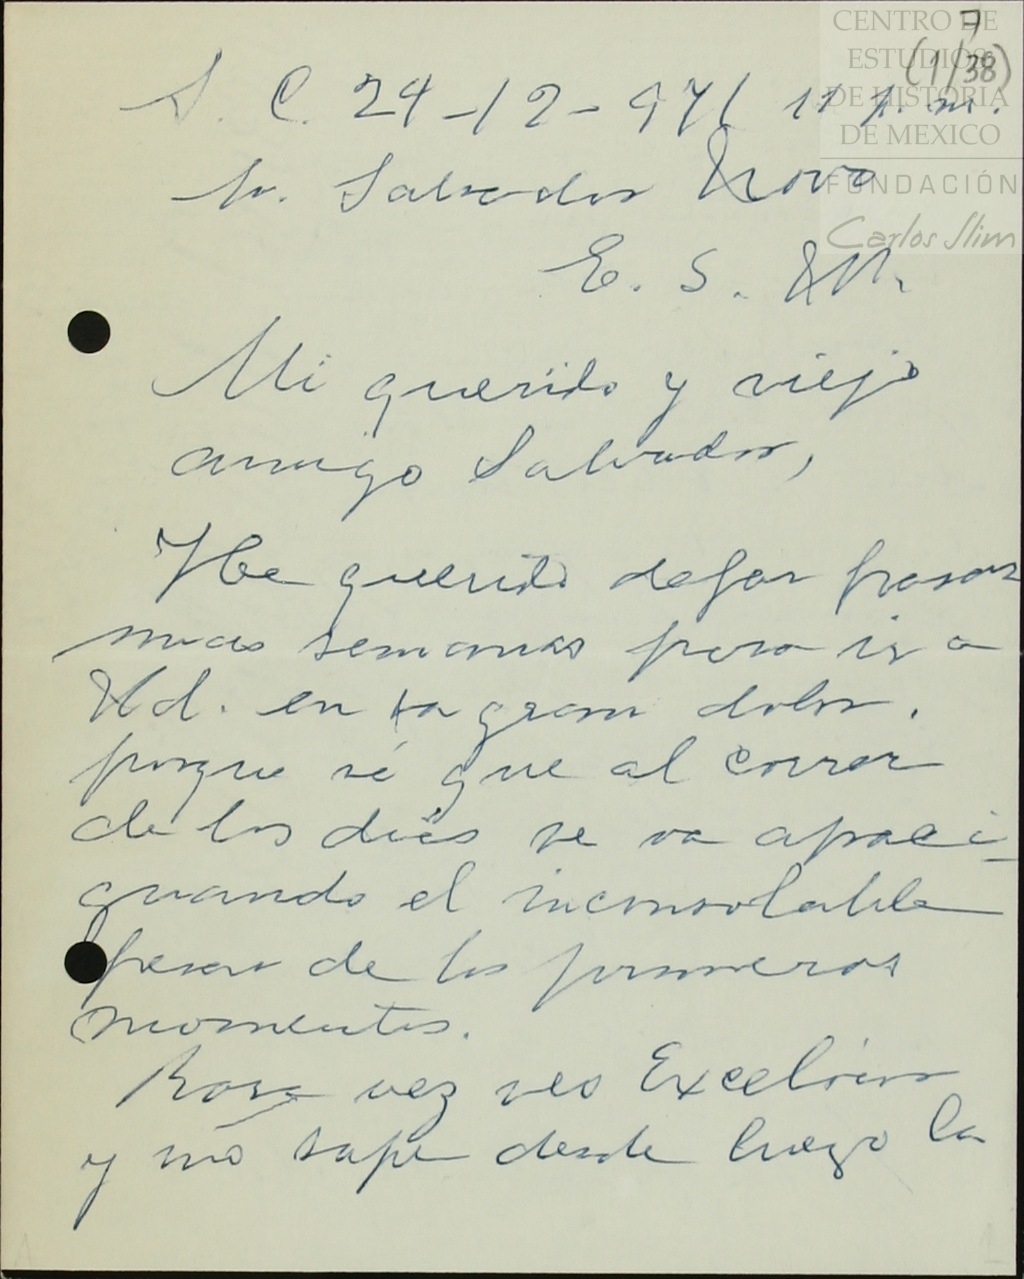 7
(1/38)
CENTRO DE
ESTUDIOS
DE HISTORIA
DE MEXICO
FUNDACIÓN
Carlos Slim
S. C. 24-12-971 11 p.m.
Sr. Salvador Novo
E. S. M.
Mi querido y viejo
amigo Salvador,
He querido dejar pasar
unas semanas para ir a
Ud. en su gran dolor,
porque sé que al correr
de los días se va apaci-
guando el inconsolable
pesar de los primeros
momentos.
Rara vez veo Excelsior
y no supe desde luego la